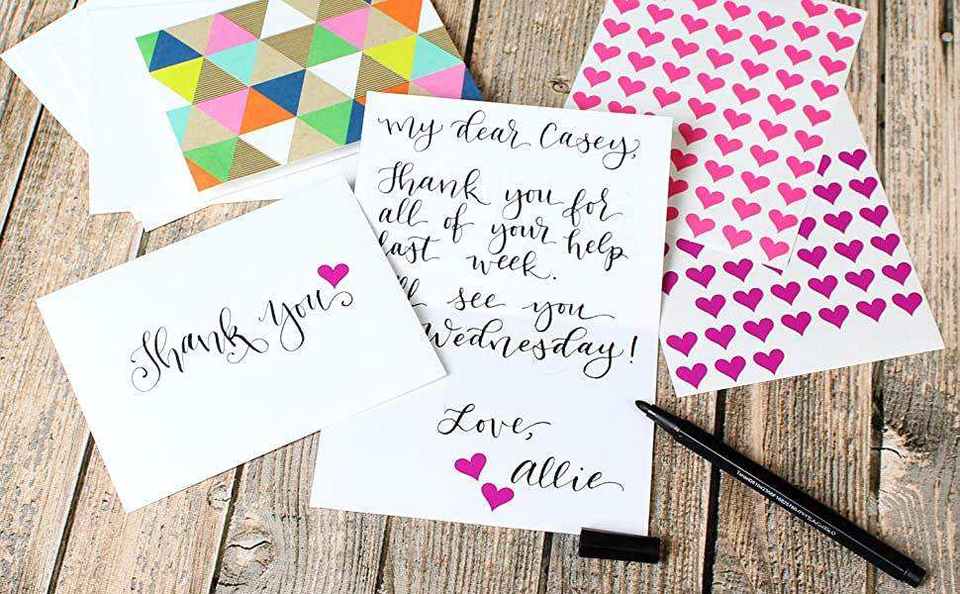 My dear Casey,
Thank you for
all of your help
last week.
see you
Wednesday!
Love,
Allie
Thank You